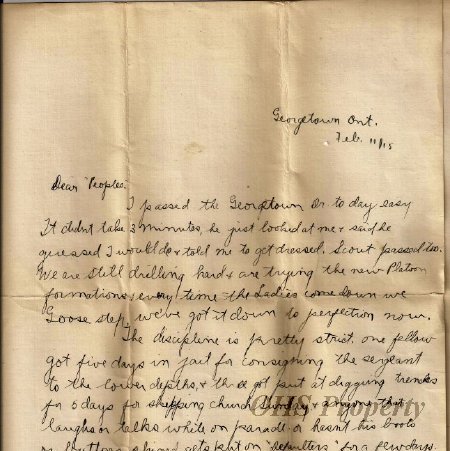 Georgetown Ont.
Feb. 11/15
Dear "Peoples.
I passed the Georgetown Dr. to day easy
It didnt take 3 minutes, he just looked at me & said he
guessed I would do & told me to get dressed. Scout passed too.
We are still drilling hard & are trying the new Platoon
formations, every time the Ladies come down we
Goose step, we've got it down to perfection now.
The discipline is pretty strict, one fellow
got five days in jail for consigning the sergeant
to the lower depths, & three got put at digging trenches
for 5 days for skipping church Sunday & anyone that
laughs or talks while on parade or hasnt his boots
or buttons shined gets put on "defaulters" for a few days.
GHS Property